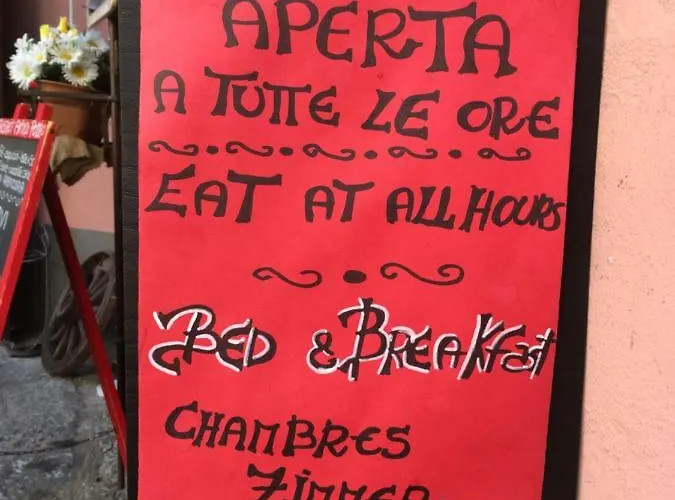 APERTA
A TUTTE LE ORE
EAT AT ALL HOURS
BED & BREAKFast
CHAMBRES
ZIMMER